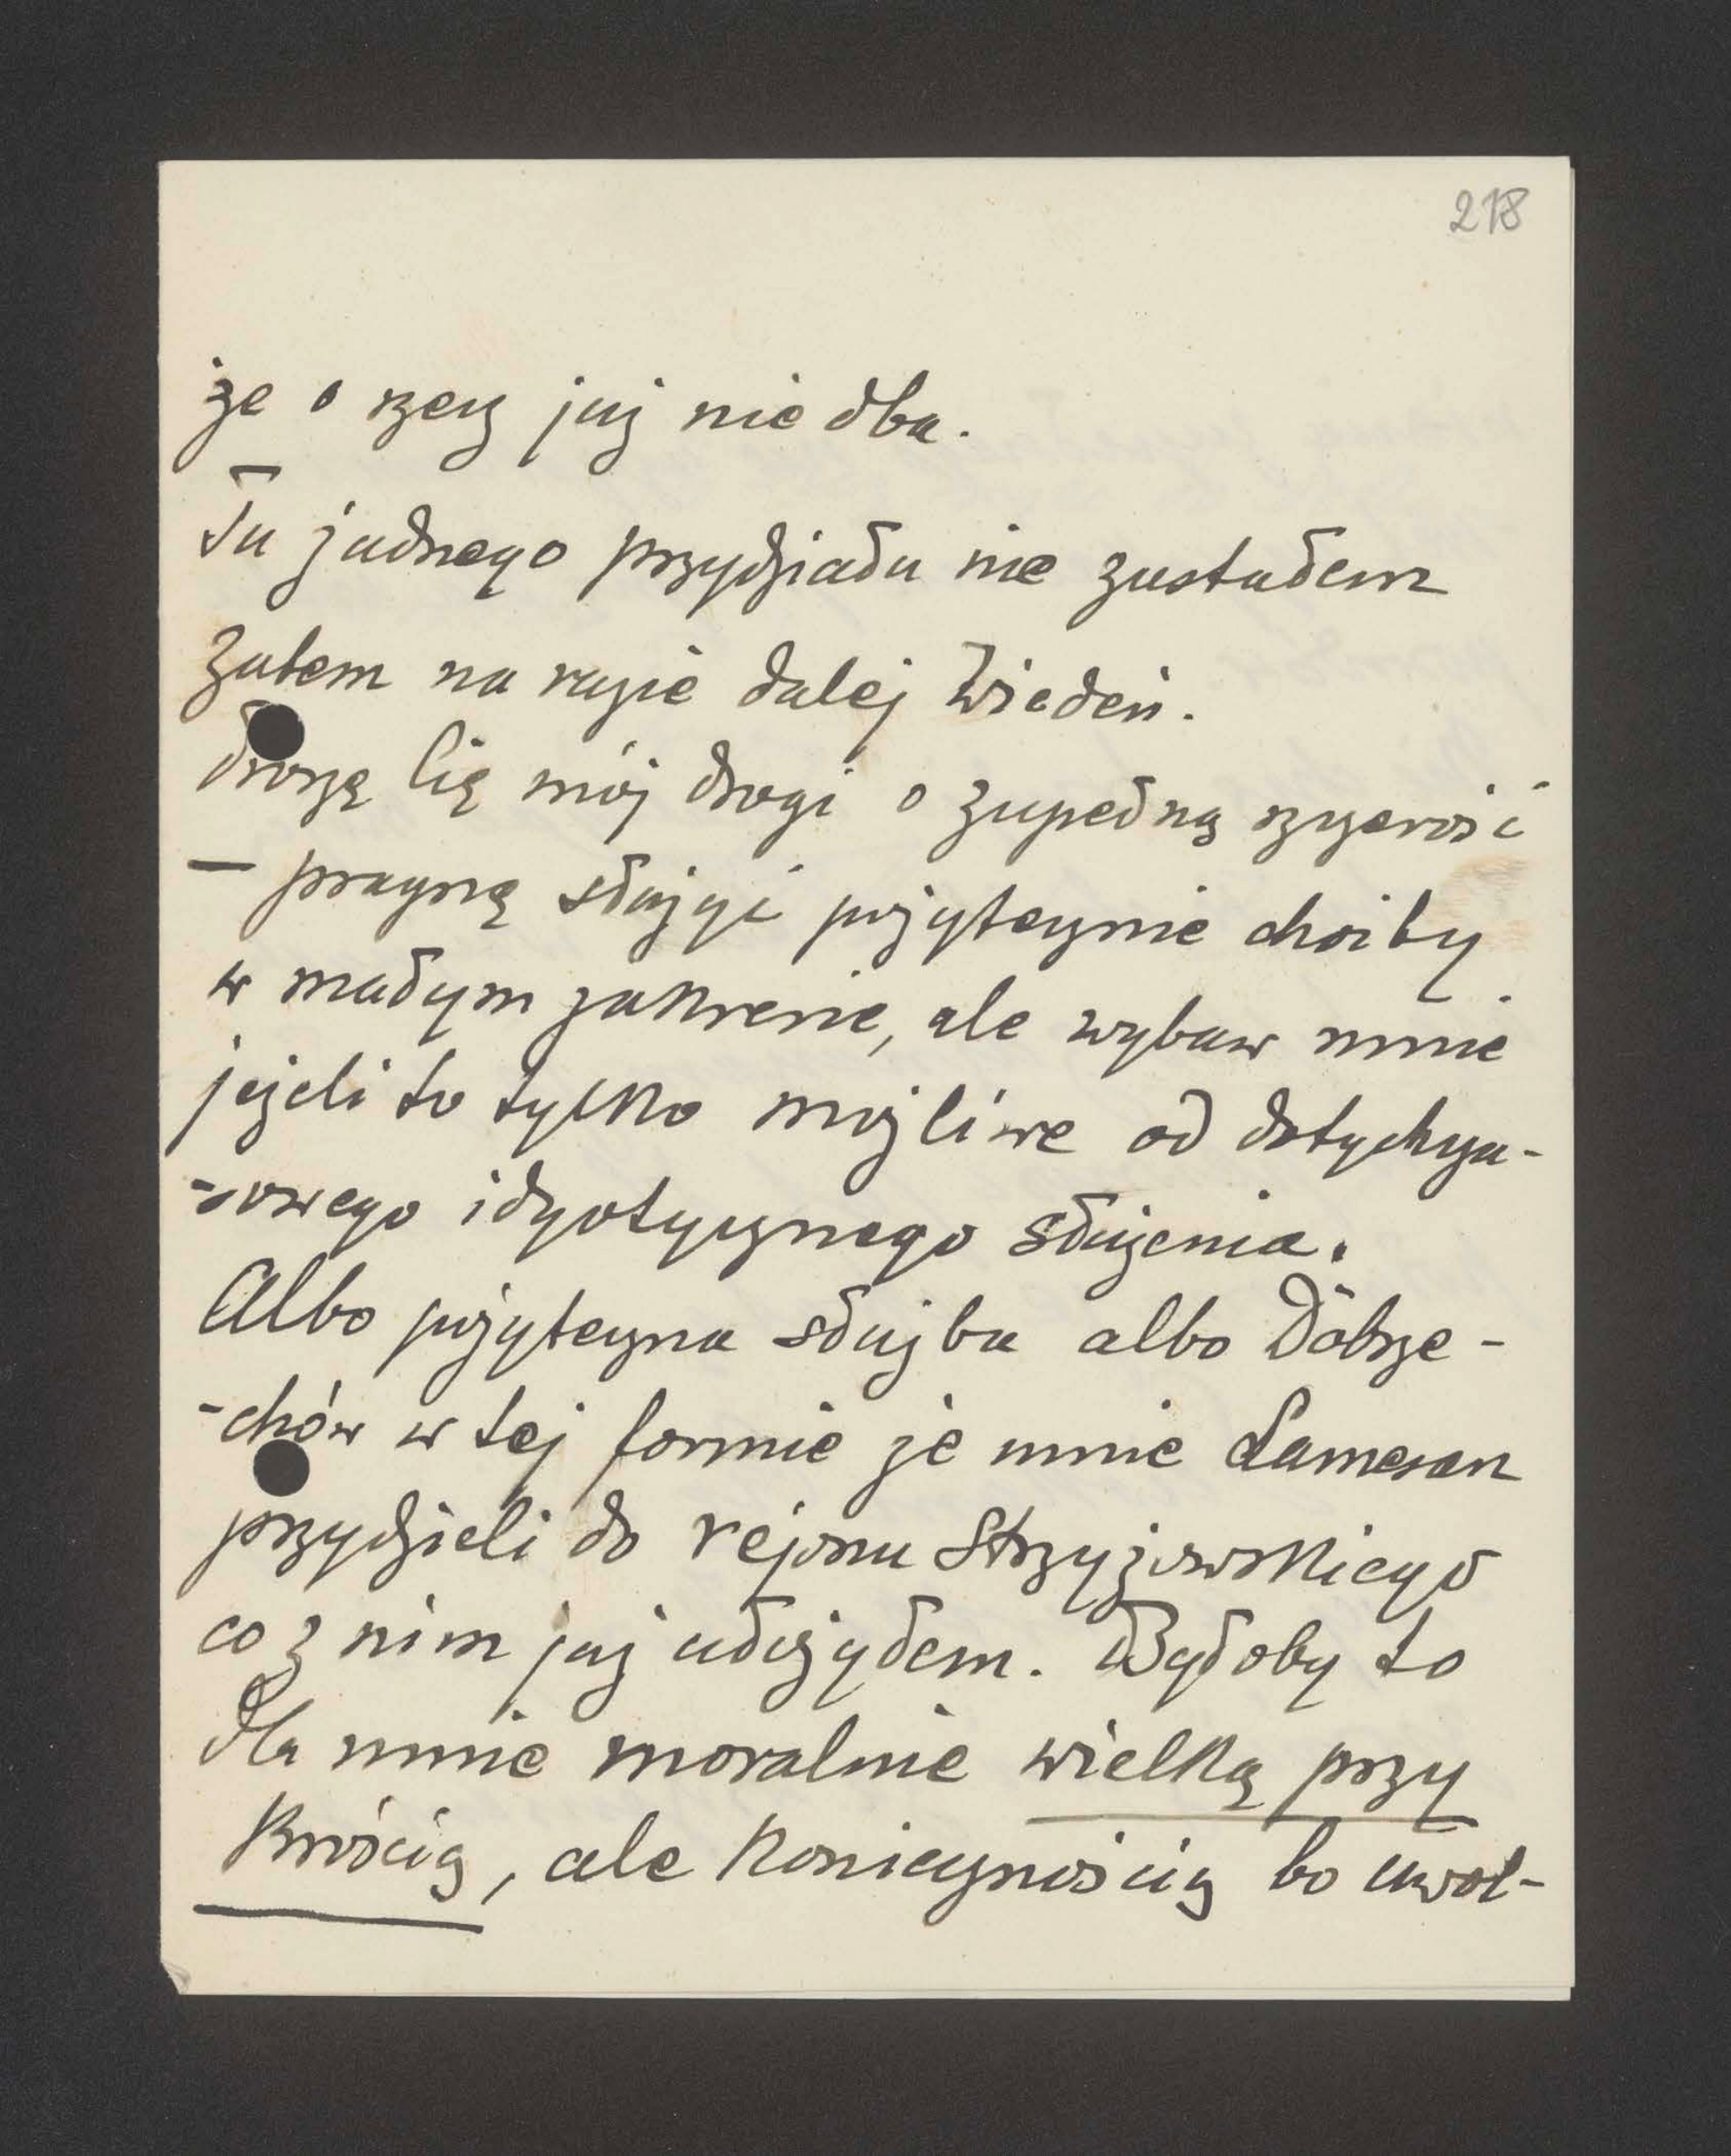 218
że o rzecz już nie dba.
Tu żadnego przydziału nie zastałem
zatem na razie dalej Wiedeń.
Proszę Cię mój drogi o zupełną szczerość
— pragnę służyć pożytecznie choćby
w małym zakresie, ale wybaw mnie
jeżeli to tylko możliwe od dotychcza-
-sowego idyotycznego służenia.
Albo pożyteczna służba albo Dobrze-
-chów w tej formie że mnie Lamezan
przydzieli do rejonu Strzyżowskiego
co z nim już ułożyłem. Byłoby to
dla mnie moralnie wielką przy
krością, ale koniecznością bo uwol-